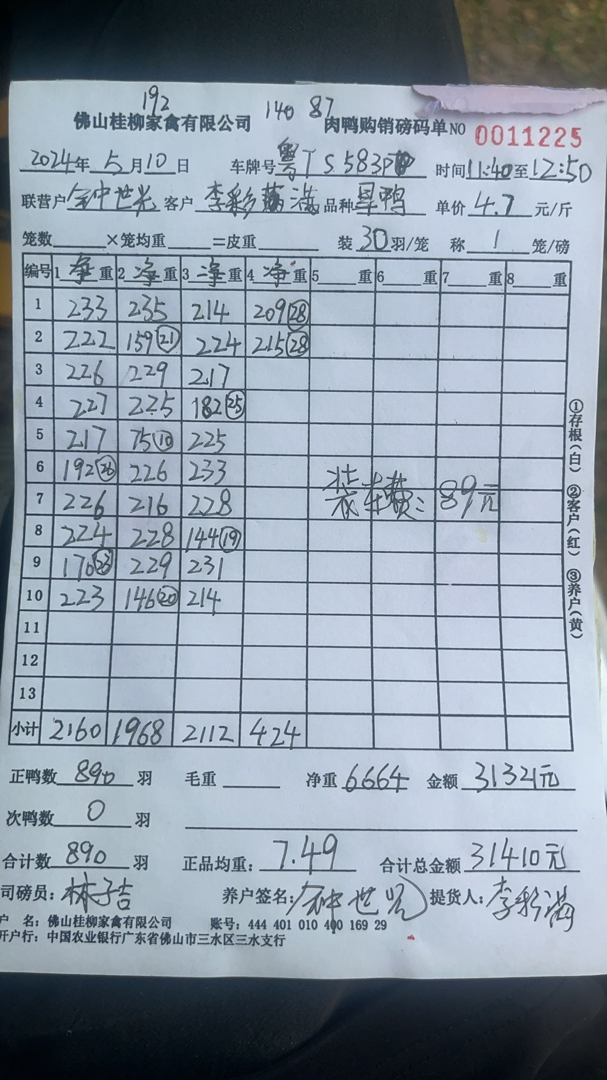 192 140 87
佛山桂柳家禽有限公司 肉鸭购销磅码单 NO 0011225
2024年 5月 10日 车牌号 粤TS583 时间 11:40 至 12:50
联营户 钟世光 客户 李彩满 品种 旱鸭 单价 4.7 元/斤
笼数 ×笼均重 =皮重 装 30 羽/笼 称 1 笼/磅
编号 1 净重 2 净重 3 净重 4 净重 5 重 6 重 7 重 8 重
1 233 235 214 209(28)
2 222 159(21) 224 215(28)
3 226 229 217
4 227 225 182(25)
5 217 75(10) 225
6 192(26) 226 233
7 226 216 228 装车费:89元
8 224 228 144(19)
9 170(23) 229 231
10 223 146(20) 214
11
12
13
小计 2160 1968 2112 424
正鸭数 890 羽 毛重 净重 6664 金额 31321元
次鸭数 0 羽
合计数 890 羽 正品均重: 7.49 合计总金额 31410元
司磅员: 林子吉 养户签名: 钟世光 提货人: 李彩满
户 名: 佛山桂柳家禽有限公司 账号: 444 401 010 400 169 29
开户行: 中国农业银行广东省佛山市三水区三水支行
①存根(白) ②客户(红) ③养户(黄)